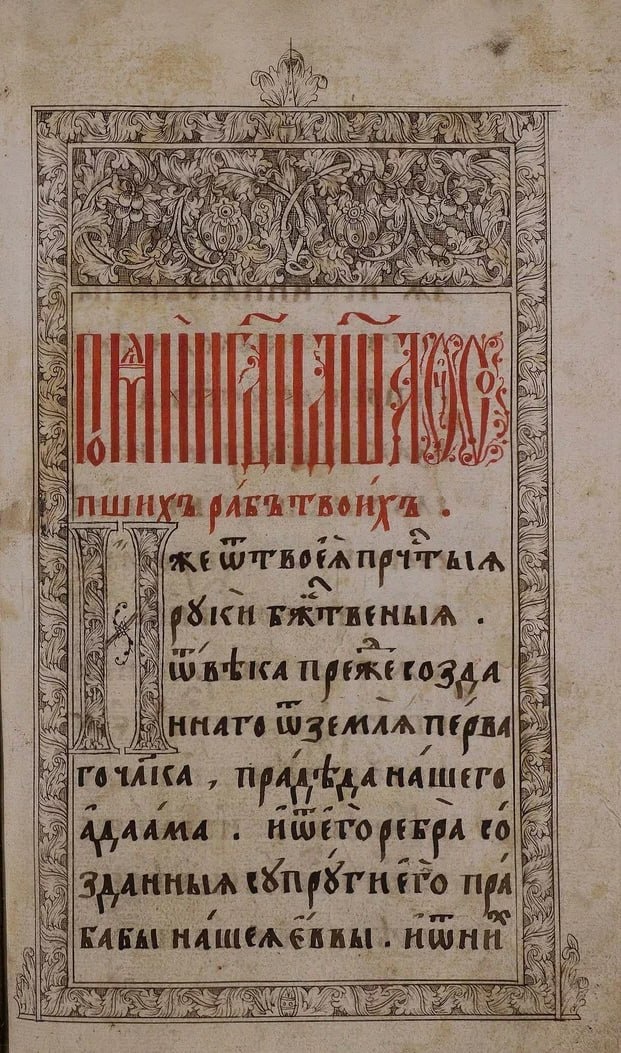 Помѧни̇ гд҃и дш҃а ѹсо
пшихъ ра́бъ твои́хъ .
Иже ѿ твоеѧ̀ прчⷭ҇тыѧ
руки̇ бжⷭ҇твеныѧ .
ѿ вѣка преⷤже созда
ннаго ѿ землѧ̀ пе́рва
го чл҃ка , пра́дѣда на́шего
а҆даа́ма . и҆ ѿ е҆го̀ ребра̀ со́
зданныѧ супру́ги е҆го̀ пра́
бабы на́шеѧ е҆́ввы . и҆ ѿ ниⷯ